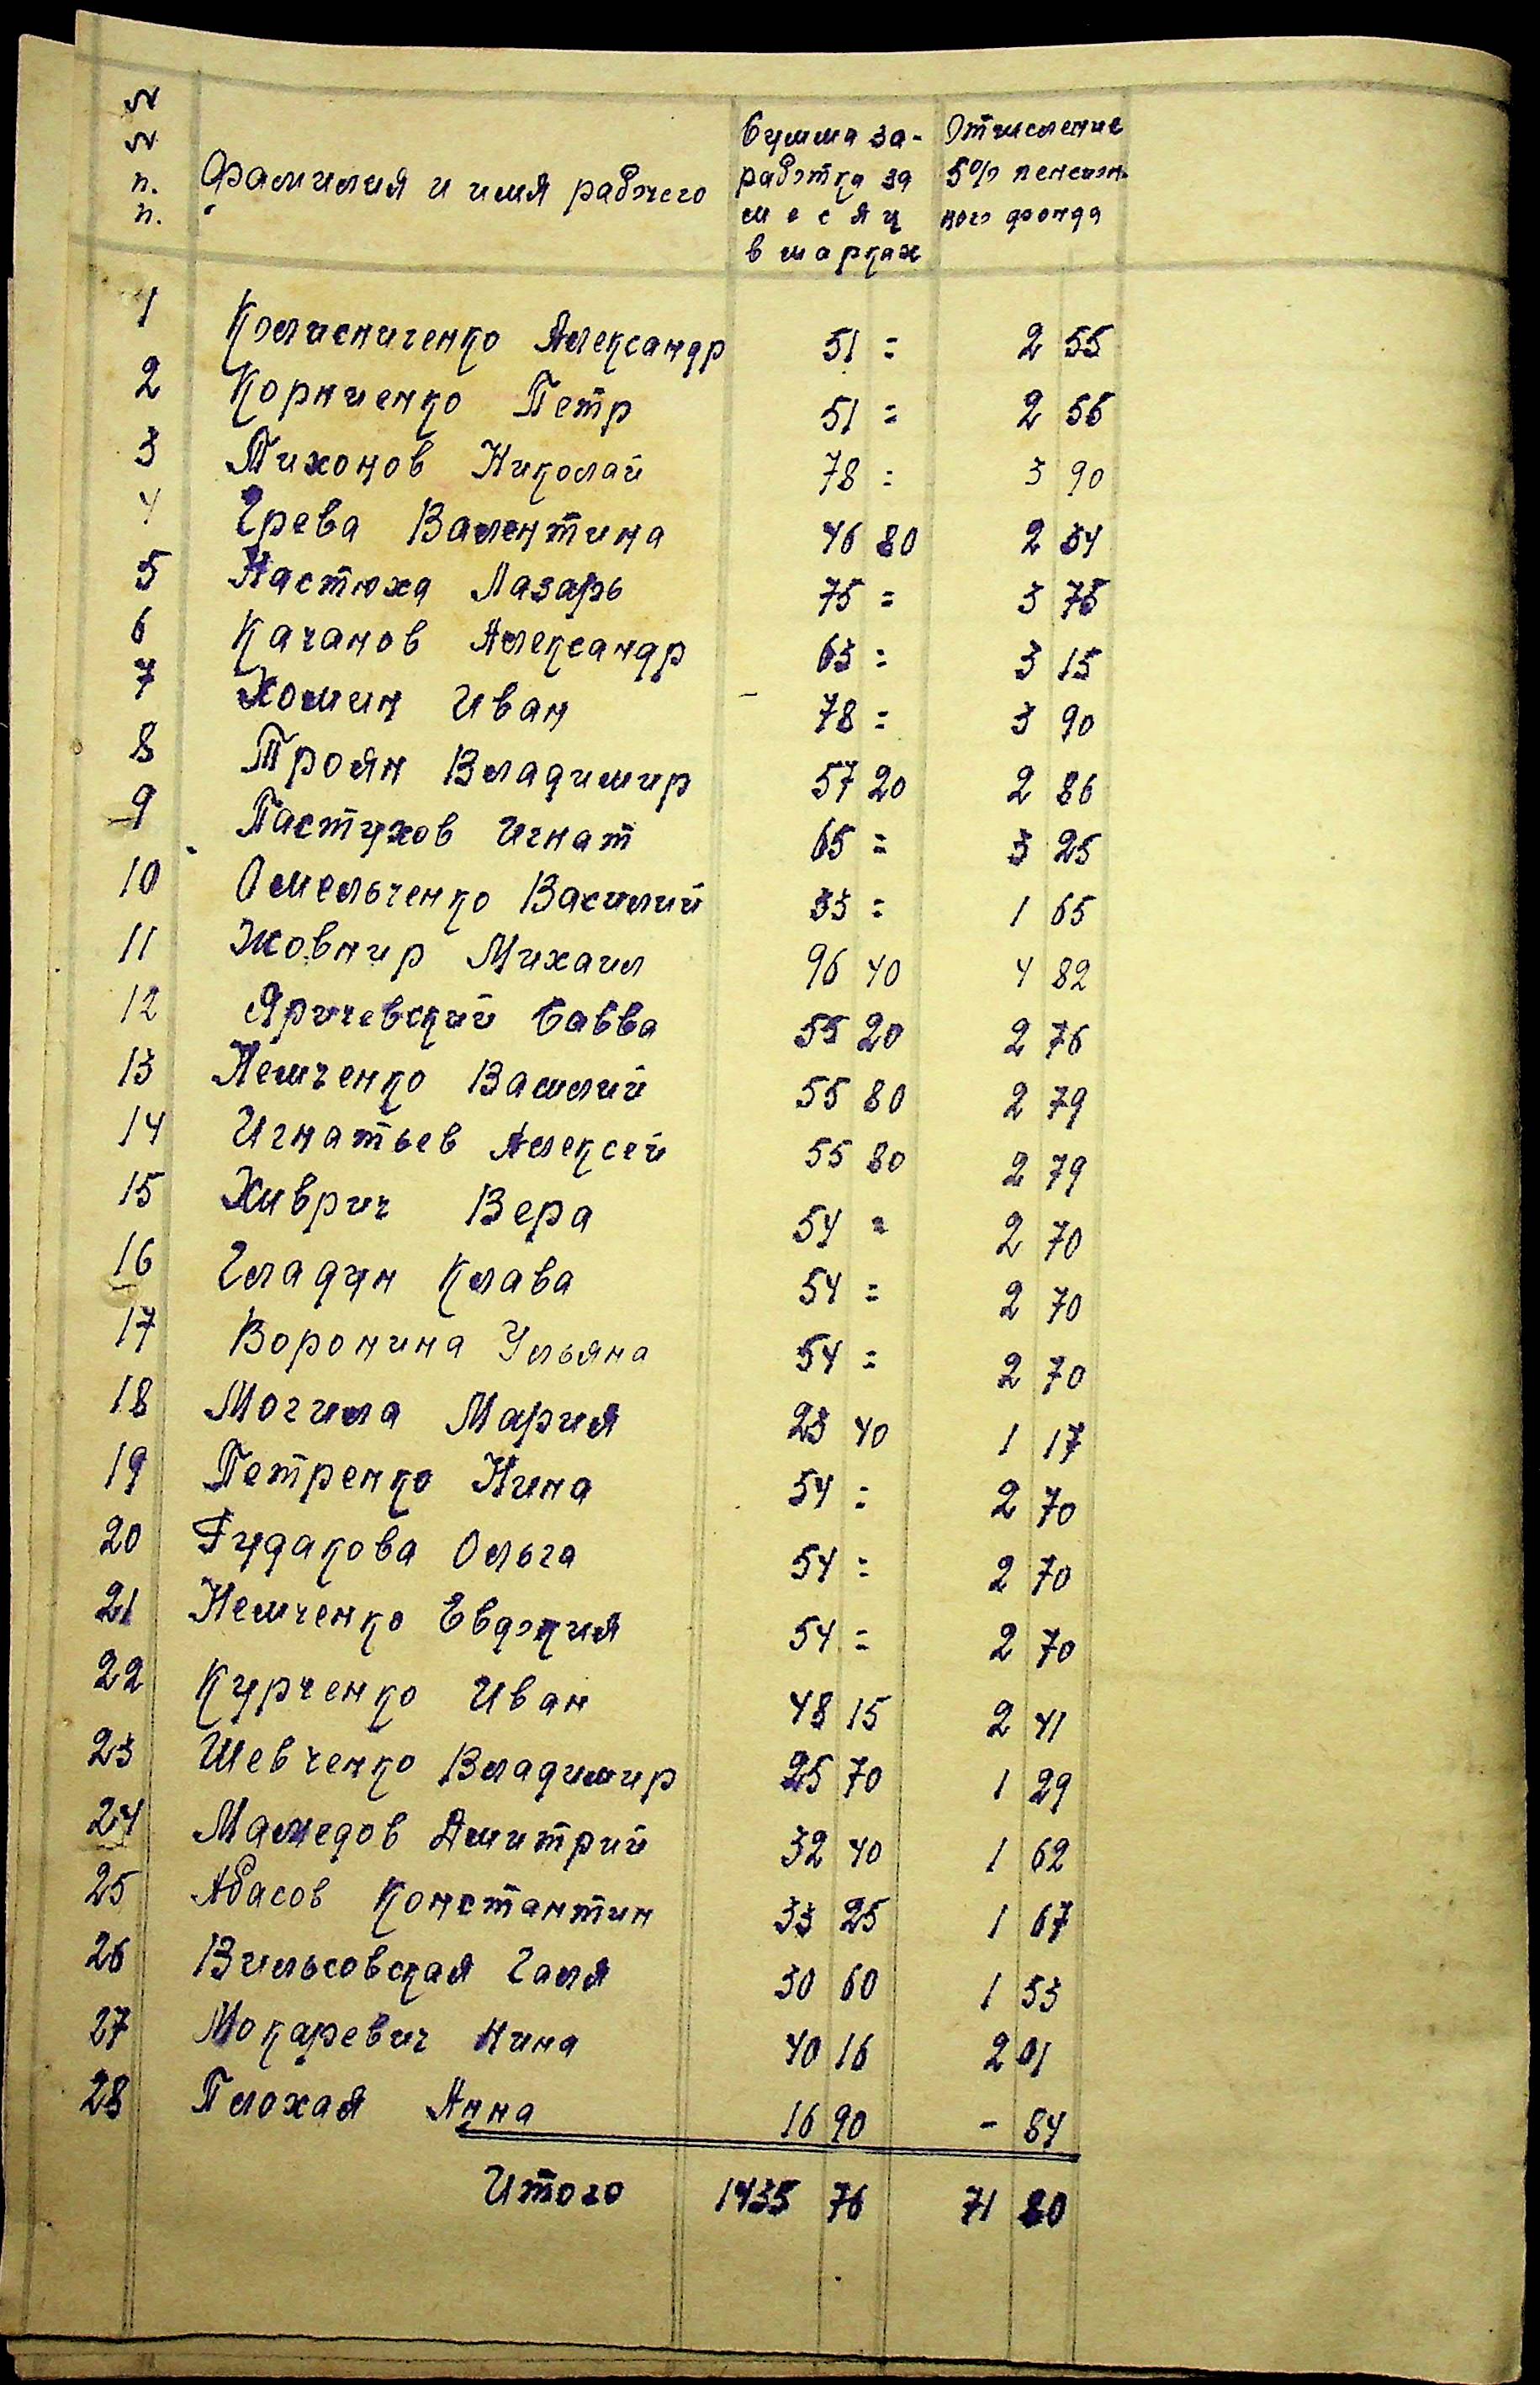 №
№
п.
п.
Фамилия и имя рабочего
Сумма за-
работка за
месяц
в марках
Отчисление
5% пенсион-
ного фонда
1 Колисниченко Александр 51 = 2 55
2 Корниенко Петр 51 = 2 55
3 Тихонов Николай 78 = 3 90
4 Грева Валентина 46 80 2 34
5 Настюха Лазарь 75 = 3 75
6 Качанов Александр 63 = 3 15
7 Хомин Иван 78 = 3 90
8 Троян Владимир 57 20 2 86
9 Пастухов Игнат 65 = 3 25
10 Омельченко Василий 33 = 1 65
11 Жовнир Михаил 96 40 4 82
12 Яричевский Савва 55 20 2 76
13 Немченко Василий 55 80 2 79
14 Игнатьев Алексей 55 80 2 79
15 Хиврич Вера 54 = 2 70
16 Гладун Клава 54 = 2 70
17 Воронина Ульяна 54 = 2 70
18 Могила Мария 23 40 1 17
19 Петренко Нина 54 = 2 70
20 Гудакова Ольга 54 = 2 70
21 Немченко Евдокия 54 = 2 70
22 Курченко Иван 48 15 2 41
23 Шевченко Владимир 25 70 1 29
24 Мамедов Дмитрий 32 40 1 62
25 Абасов Константин 33 25 1 67
26 Вильсовская Галя 30 60 1 53
27 Мокаревич Нина 40 16 2 01
28 Плохая Анна 16 90 - 84
Итого 1435 76 71 80